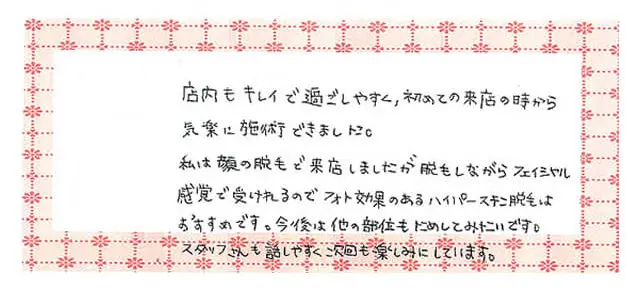 店内もキレイで過ごしやすく,初めての来店の時から
気楽に施術できました。
私は顔の脱毛で来店しましたが脱毛しながらフェイシャル
感覚で受けれるのでフォト効果のあるハイパースキン脱毛は
おすすめです。今後は他の部位もためしてみたいです。
スタッフさんも話しやすく次回も楽しみにしています。